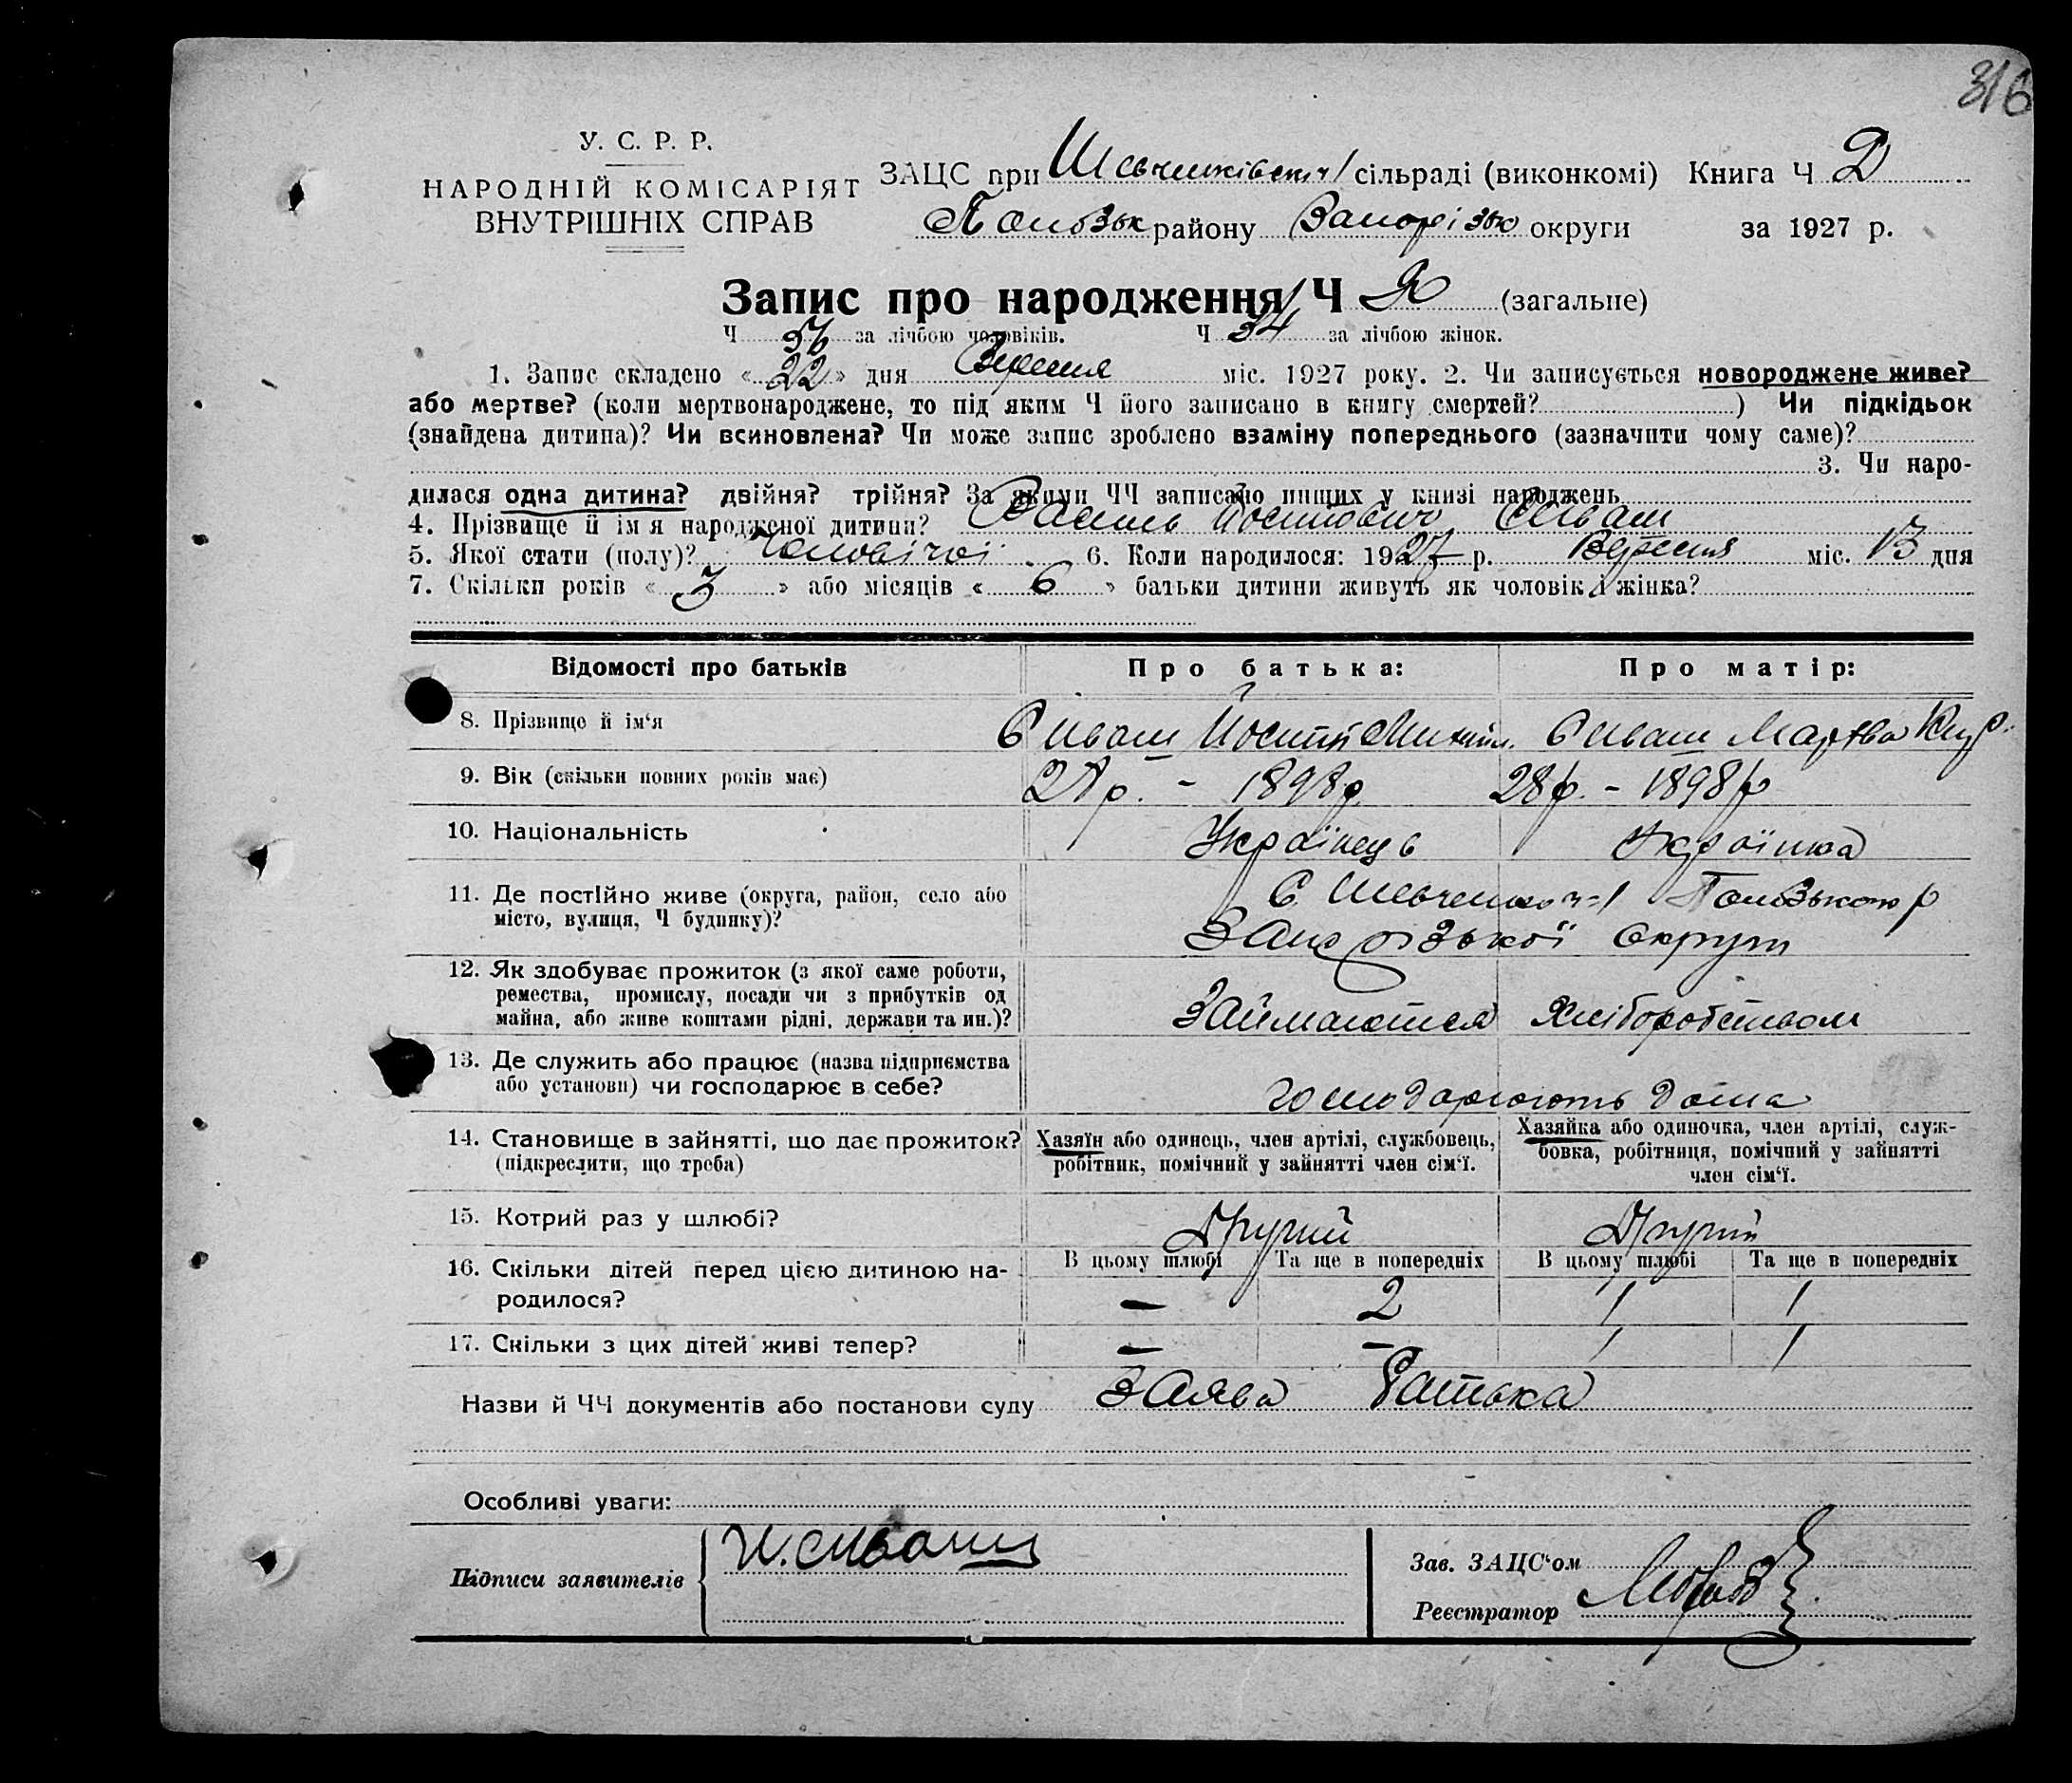 316
У. С. Р. Р.
НАРОДНІЙ КОМІСАРІЯТ
ВНУТРІШНІХ СПРАВ
ЗАЦС при сільраді (виконкомі) Книга Ч
району округи за 1927 р.
Запис про народження Ч (загальне)
Ч 56 за лічбою чоловіків. Ч 34 за лічбою жінок.
1. Запис складено « 22 » дня Вересня міс. 1927 року. 2. Чи записується новороджене живе?
або мертве? (коли мертвонароджене, то під яким Ч його записано в книгу смертей? ) Чи підкідьок
(знайдена дитина)? Чи всиновлена? Чи може запис зроблено взаміну попереднього (зазначити чому саме)?
3. Чи наро-
дилася одна дитина? двійня? трійня? За якими ЧЧ записано инших у книзі народжень
4. Прізвище й ім'я народженої дитини? Василь Йосипович Сиваш
5. Якої стати (полу)? Чоловічої 6. Коли народилося: 1927 р. Вересня міс. 13 дня
7. Скільки років « 3 » або місяців « 6 » батьки дитини живуть як чоловік і жінка?
Відомості про батьків Про батька: Про матір:
8. Прізвище й ім'я Сиваш Йосип Михайл. Сиваш Марфа
9. Вік (скільки повних років має) 1898р 28р. - 1898р
10. Національність Українець Українка
11. Де постійно живе (округа, район, село або
місто, вулиця, Ч будинку)?
Запорізької округи
12. Як здобуває прожиток (з якої саме роботи,
ремества, промислу, посади чи з прибутків од
майна, або живе коштами рідні, держави та ин.)?
Займаются Хліборобством
13. Де служить або працює (назва підприємства
або установи) чи господарює в себе?
Господарюють дома
14. Становище в зайнятті, що дає прожиток?
(підкреслити, що треба)
Хазяїн або одинець, член артілі, службовець,
робітник, помічний у зайнятті член сім'ї.
Хазяйка або одиночка, член артілі, служ-
бовка, робітниця, помічний у зайнятті
член сім'ї.
15. Котрий раз у шлюбі? Другий Другий
В цьому шлюбі Та ще в попередніх В цьому шлюбі Та ще в попередніх
16. Скільки дітей перед цією дитиною на-
родилося?
— 2 1 1
17. Скільки з цих дітей живі тепер? — — 1 1
Назви й ЧЧ документів або постанови суду Заява Батька
Особливі уваги:
Підписи заявителів Й. Сиваш
Зав. ЗАЦС'ом
Реєстратор